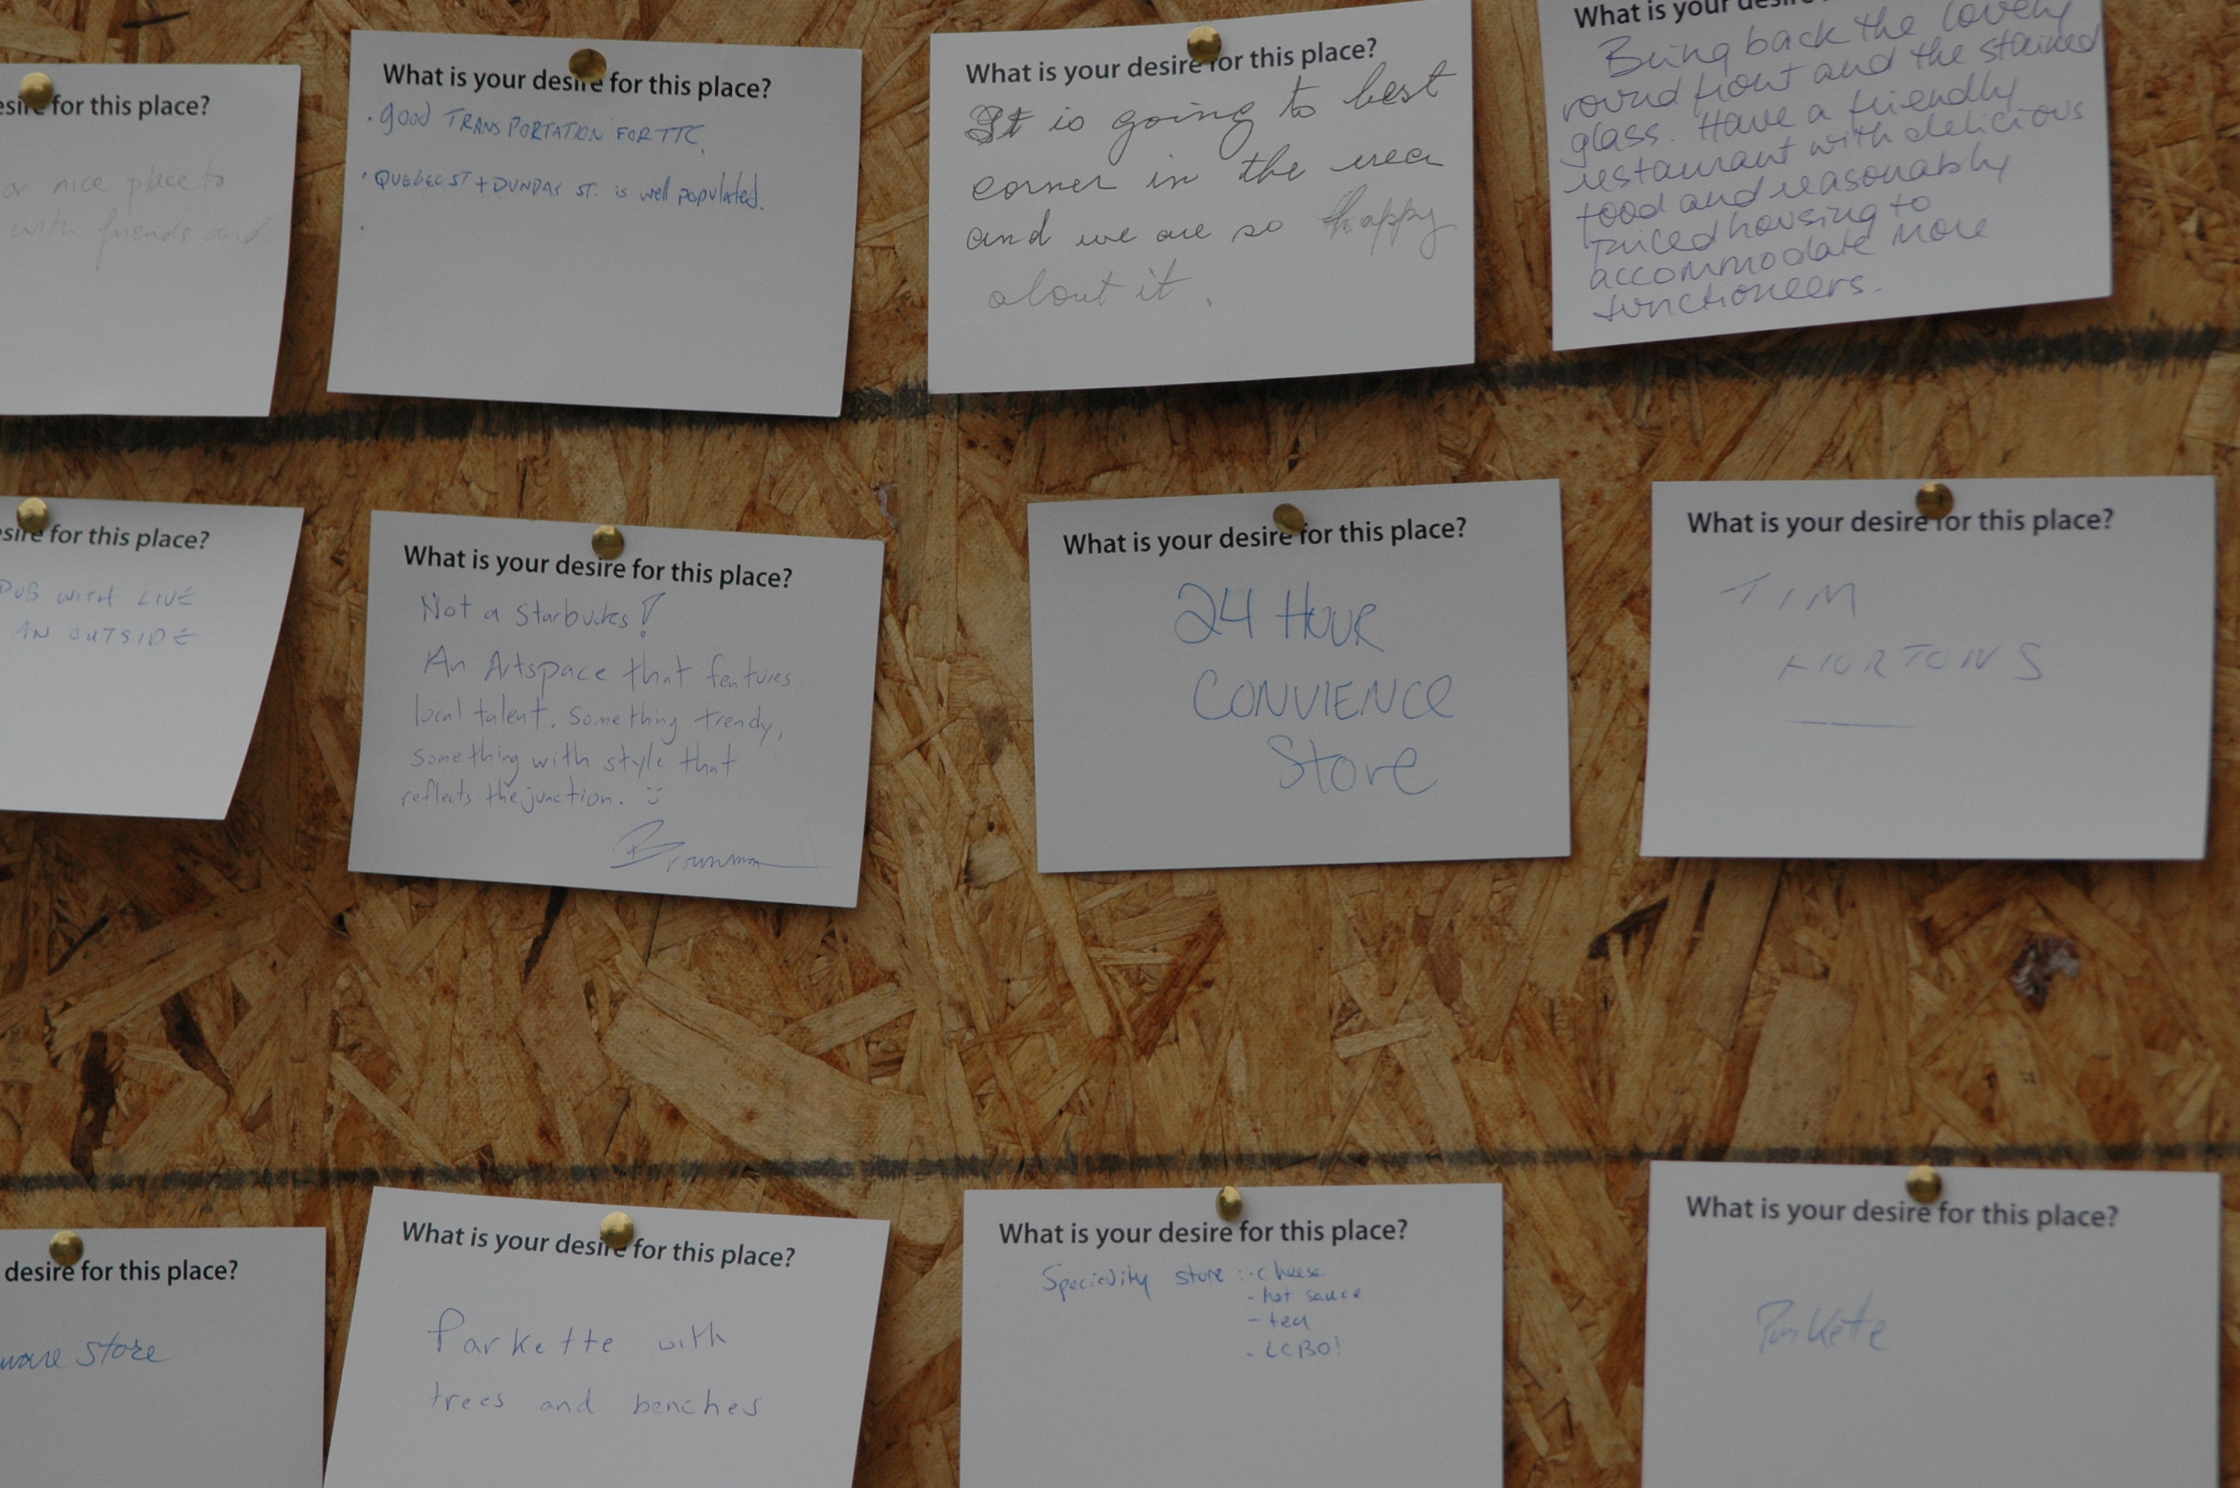 for this place?
or nice place to
with friends and
What is your desire for this place?
. good TRANSPORTATION FOR TTC.
. QUEBEC ST + DUNDAS ST. is well populated.
What is your desire for this place?
It is going to best
corner in the area
and we are so happy
about it.
What is your desire
Bring back the lovely
round front and the stained
glass. Have a friendly
restaurant with delicious
food and reasonably
priced housing to
accommodate more
functioneers.
for this place?
PUB WITH LIVE
AN OUTSIDE
What is your desire for this place?
Not a Starbucks!
An Artspace that features
local talent. Something trendy,
something with style that
reflects the junction. :)
What is your desire for this place?
24 HOUR
CONVIENCE
Store
What is your desire for this place?
TIM
HORTONS
desire for this place?
ware store
What is your desire for this place?
Parkette with
trees and benches
What is your desire for this place?
Speciality store : - cheese
- hot sauce
- tea
- LCBO!
What is your desire for this place?
Parkette